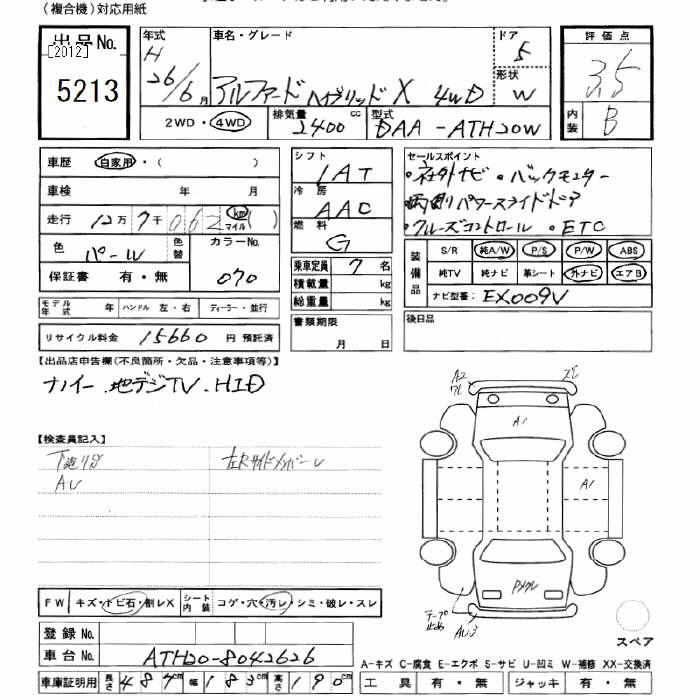 (複合機)対応用紙
出品No.
[2012]
5213
年式
H
26/6月
車名・グレード
アルファード ハイブリッド X 4WD
ドア
5
形状
W
2WD・4WD
排気量
2400 cc
型式
DAA-ATH20W
評価点
3.5
内装
B
車歴 自家用・( )
車検 年 月
走行 12万7千062 km マイル ( )
色 パール 色替 カラーNo. 070
保証書 有・無
モデル年式 年 ハンドル 左・右 ディーラー・並行
リサイクル料金 15660 円 預託済
シフト
IAT
冷房
AAC
燃料
G
乗車定員 7 名
積載量 kg
総重量 kg
書類期限
月 日
セールスポイント
・社外ナビ ・バックモニター
・両側パワースライドドア
・クルーズコントロール ・ETC
装備品
S/R 純A/W P/S P/W ABS
純TV 純ナビ 革シート 外ナビ エアB
ナビ型番: EX009V
後日品
【出品店申告欄(不良箇所・欠品・注意事項等)】
ナノイー .地デジTV.HID
【検査員記入】
下廻りサ
AU
FW キズ・トビ石・割レX シート内装 コゲ・穴・汚レ・シミ・破レ・スレ
登録No.
車台No. ATH20-8042626
車庫証明用 長さ 484cm 幅 183cm 高さ 190cm
A2
ズレ
A1
A1
テープ止め
AU3
スペア
A-キズ C-腐食 E-エクボ S-サビ U-凹ミ W-補修 XX-交換済
工具 有・無 ジャッキ 有・無